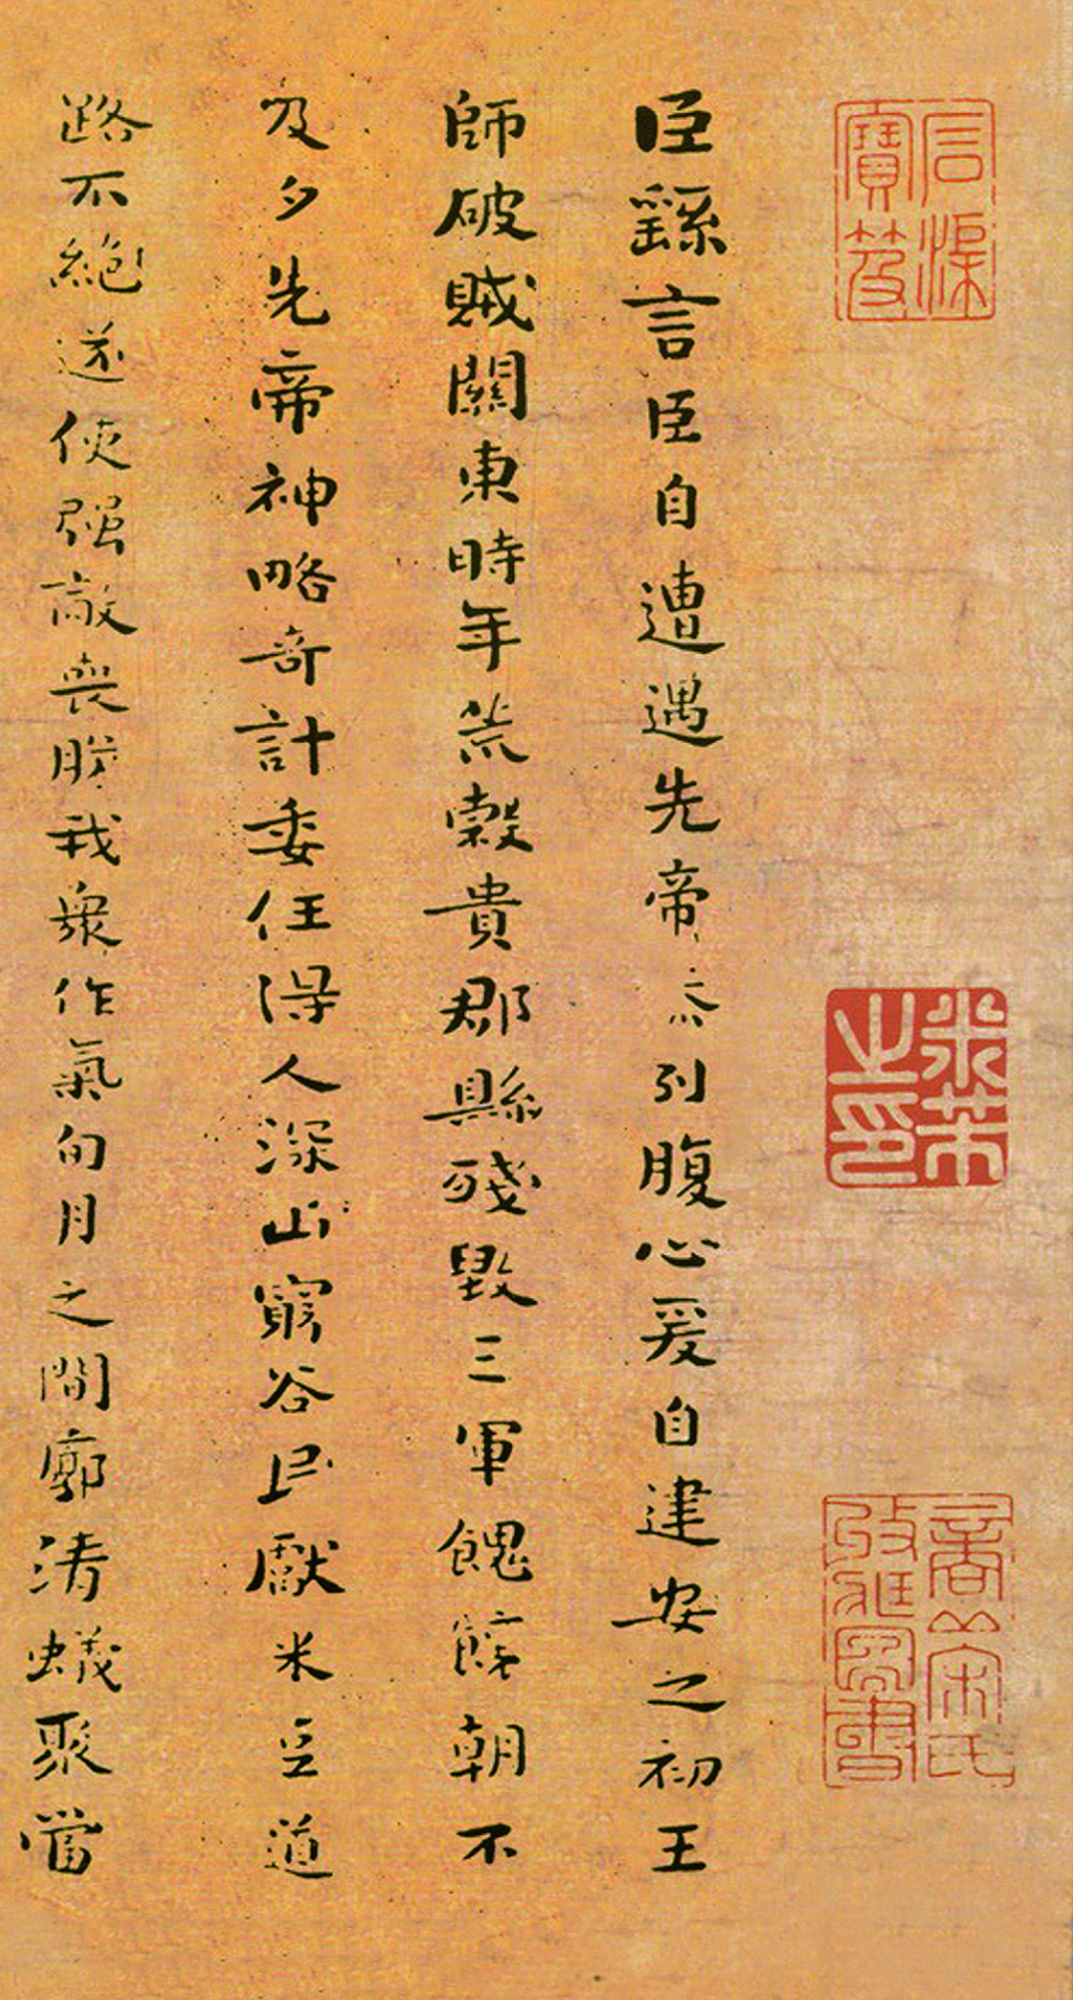 石渠寶笈
米芾之印
商丘宋氏收藏圖書
臣繇言臣自遭遇先帝忝列腹心爰自建安之初王
師破賊關東時年荒穀貴郡縣殘毀三軍餽饟朝不
及夕先帝神略奇計委任得人深山窮谷民獻米豆道
路不絕遂使强敵喪膽我衆作氣旬月之間廓清蟻聚當